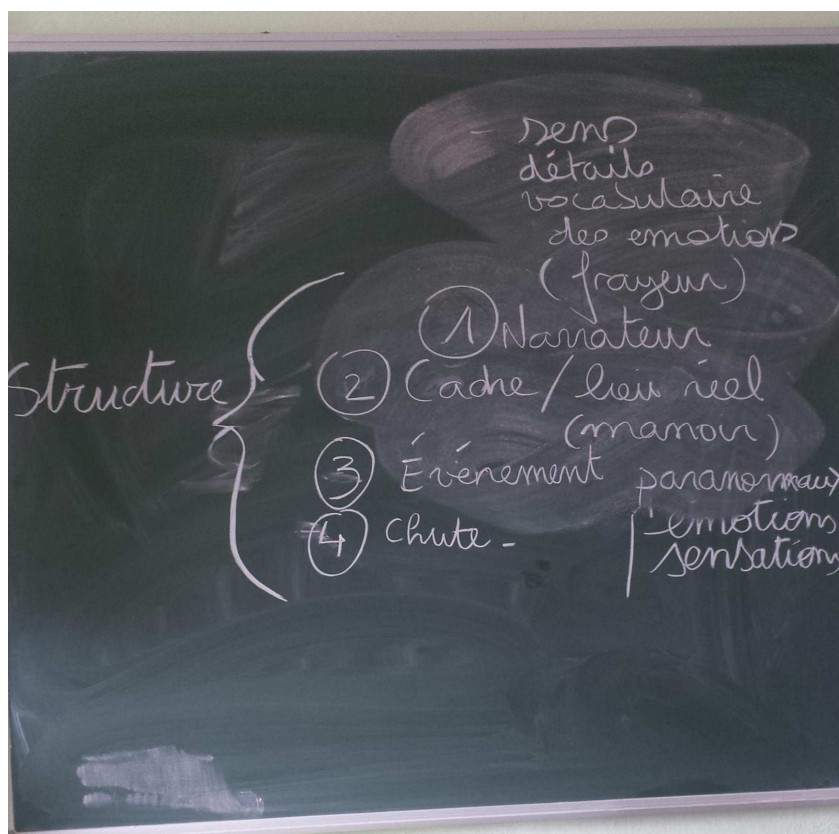 - sens
détails
vocabulaire
des emotions
(frayeur)
① Narrateur
Structure { ② Cadre / lieu réel
(manoir)
③ Événement paranormaux
④ Chute - | émotions
sensations